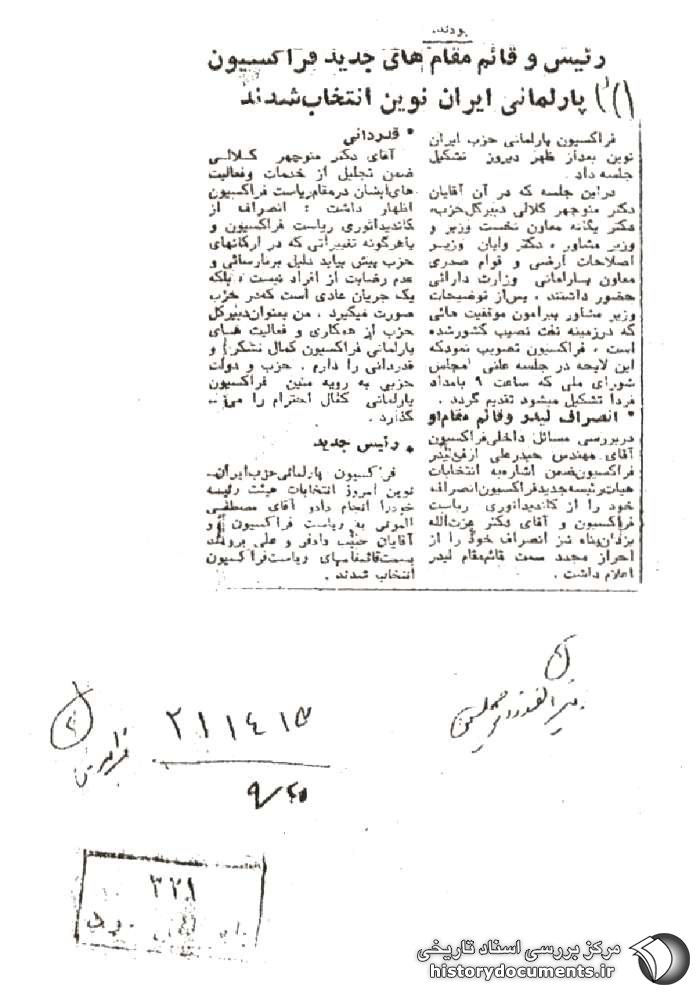 بودند.
رئیس و قائم مقام های جدید فراکسیون
پارلمانی ایران نوین انتخاب شدند
فراکسیون پارلمانی حزب ایران
نوین بعداز ظهر دیروز تشکیل
جلسه داد.
دراین جلسه که در آن آقایان
دکتر منوچهر کلالی دبیرکل حزب،
دکتر یگانه معاون نخست وزیر و
وزیر مشاور، دکتر ولیان وزیر
اصلاحات ارضی و قوام صدری
معاون پارلمانی وزارت دارائی
حضور داشتند، پس از توضیحات
وزیر مشاور پیرامون موفقیت هائی
که درزمینه نفت نصیب کشورشده
است، فراکسیون تصویب نمودکه
این لایحه در جلسه علنی مجلس
شورای ملی که ساعت ۹ بامداد
فردا تشکیل میشود تقدیم گردد.
* انصراف لیدر وقائم مقام او
دربررسی مسائل داخلی فراکسیون
آقای مهندس حیدرعلی ارفع لیدر
فراکسیون ضمن اشاره به انتخابات
هیات رئیسه جدید فراکسیون انصراف
خود را از کاندیداتوری ریاست
فراکسیون و آقای دکتر عزت الله
یزدان پناه نیز انصراف خود را از
احراز مجدد سمت قائم مقام لیدر
اعلام داشت.
* قدردانی
آقای دکتر منوچهر کلالی
ضمن تجلیل از خدمات وفعالیت
های ایشان درمقام ریاست فراکسیون
اظهار داشت: انصراف از
کاندیداتوری ریاست فراکسیون و
یا هرگونه تغییراتی که در ارکانهای
حزب پیش بیاید دلیل برنارسائی و
عدم رضایت از افراد نیست، بلکه
یک جریان عادی است که در حزب
صورت میگیرد. من بعنوان دبیرکل
حزب از همکاری و فعالیت های
پارلمانی فراکسیون کمال تشکر و
قدردانی را دارم. حزب و دولت
حزبی به رویه متین فراکسیون
پارلمانی کمال احترام را می
گذارد.
* رئیس جدید
فراکسیون پارلمانی حزب ایران
نوین امروز انتخابات هیئت رئیسه
خودرا انجام دادو آقای مصطفی
الموتی به ریاست فراکسیون و
آقایان حبیب دادفر و علی برومند
بسمت قائم مقامهای ریاست فراکسیون
انتخاب شدند.
۳۲۱
مرکز بررسی اسناد تاریخی
historydocuments.ir